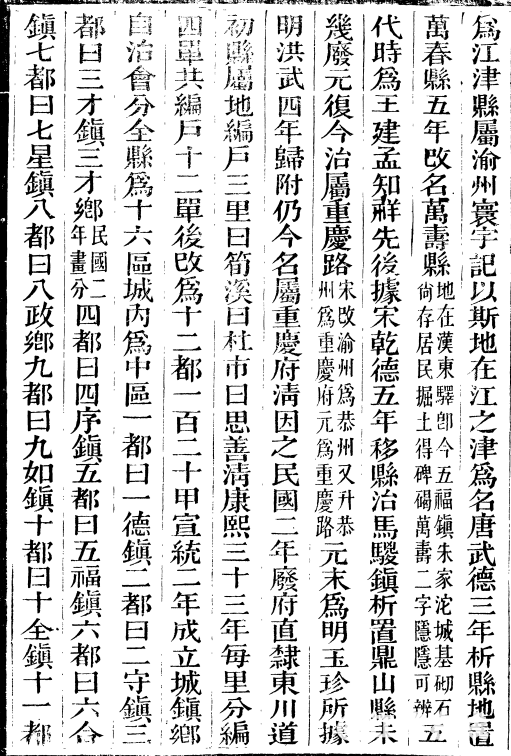 爲江津縣屬渝州寰宇記以斯地在江之津爲名唐武德三年析縣地置
萬春縣五年改名萬壽縣地在漢東驛卽今五福鎭朱家沱城基砌石尙存居民掘土得碑碣萬壽二字隱隱可辨五
代時爲王建孟知祥先後據宋乾德五年移縣治馬騣鎭析置鼎山縣未
幾廢元復今治屬重慶路宋改渝州爲恭州又升恭州爲重慶府元爲重慶路元末爲明玉珍所據
明洪武四年歸附仍今名屬重慶府淸因之民國二年廢府直隸東川道
初縣屬地編戸三里曰筍溪曰杜市曰思善淸康熙三十三年每里分編
四單共編戸十二單後改爲十二都一百二十甲宣統二年成立城鎭鄕
自治會分全縣爲十六區城內爲中區一都曰一德鎭二都曰二守鎭三
都曰三才鎭三才鄕民國二年畫分四都曰四序鎭五都曰五福鎭六都曰六合
鎭七都曰七星鎭八都曰八政鄕九都曰九如鎭十都曰十全鎭十一都